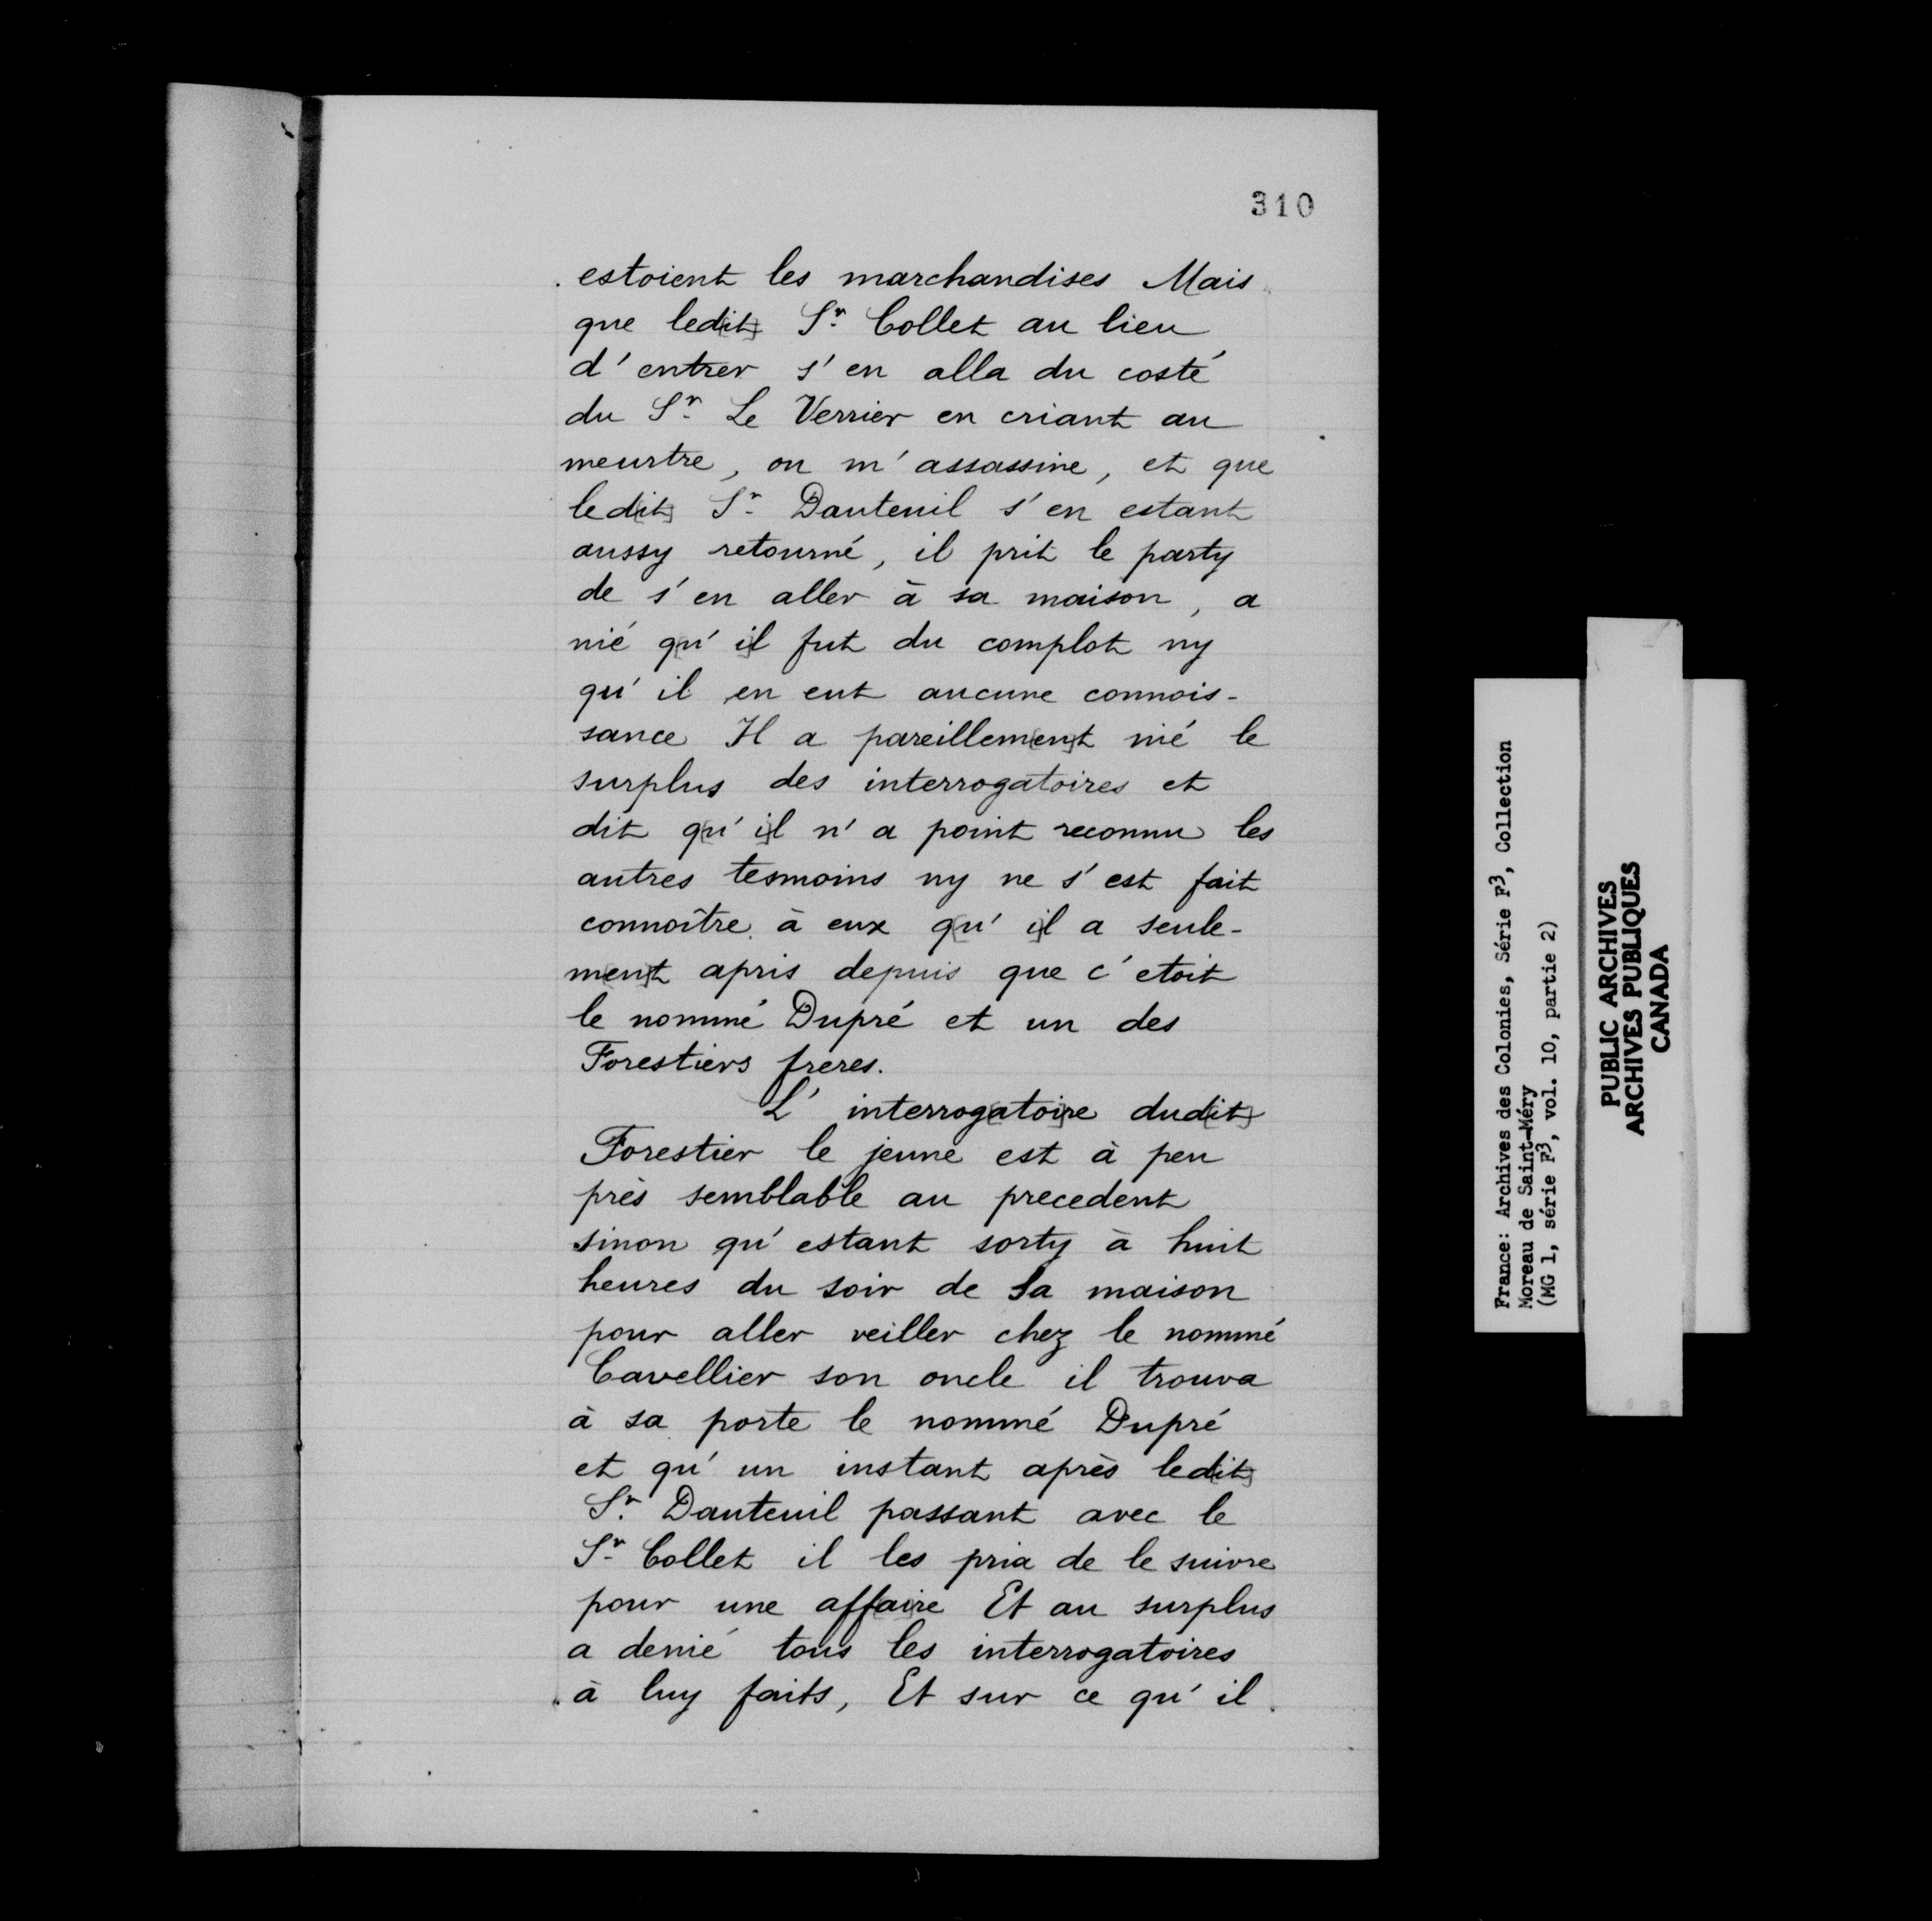 310
estoient les marchandises Mais
que led[it] Sr. Collet au lieu
d'entrer s'en alla du costé
du Sr. Le Verrier en criant au
meurtre, on m'assassine, et que
led[it] Sr. Dauteuil s'en estant
aussy retourné, il prit le party
de s'en aller à sa maison, a
nié q[u'i]l fut du complot ny
qu'il en eut aucune connois-
sance Il a pareillem[en]t nié le
surplus des interrogatoires et
dit q[u'i]l n'a point reconnu les
autres tesmoins ny ne s'est fait
connoître à eux q[u'i]l a seule-
m[en]t apris depuis que c'etoit
le nommé Dupré et un des
Forestiers freres.
L'interrog[atoi]re dud[it]
Forestier le jeune est à peu
près semblable au precedent
sinon qu'estant sorty à huit
heures du soir de sa maison
pour aller veiller chez le nommé
Cavellier son oncle il trouva
à sa porte le nommé Dupré
et qu'un instant après led[it]
Sr. Dauteuil passant avec le
Sr. Collet il les pria de le suivre
pour une aff[ai]re Et au surplus
a denié tous les interrogatoires
à luy faits, Et sur ce qu'il
France: Archives des Colonies, Série F3, Collection
Moreau de Saint-Méry
(MG 1, série F3, vol. 10, partie 2)
PUBLIC ARCHIVES
ARCHIVES PUBLIQUES
CANADA